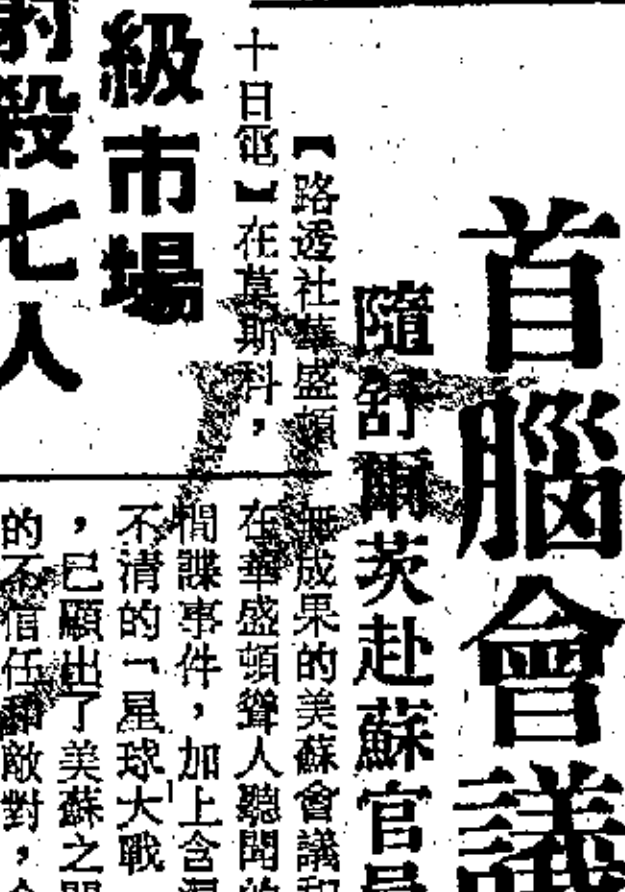 首腦會議
隨舒爾茨赴蘇官員
【路透社華盛頓
十日電】在莫斯科，
無成果的美蘇會議和
在華盛頓聳人聽聞的
間諜事件，加上含混
不清的「星球大戰
，已顯出了美蘇之間
的不信任和敵對，
級市場
射殺七人